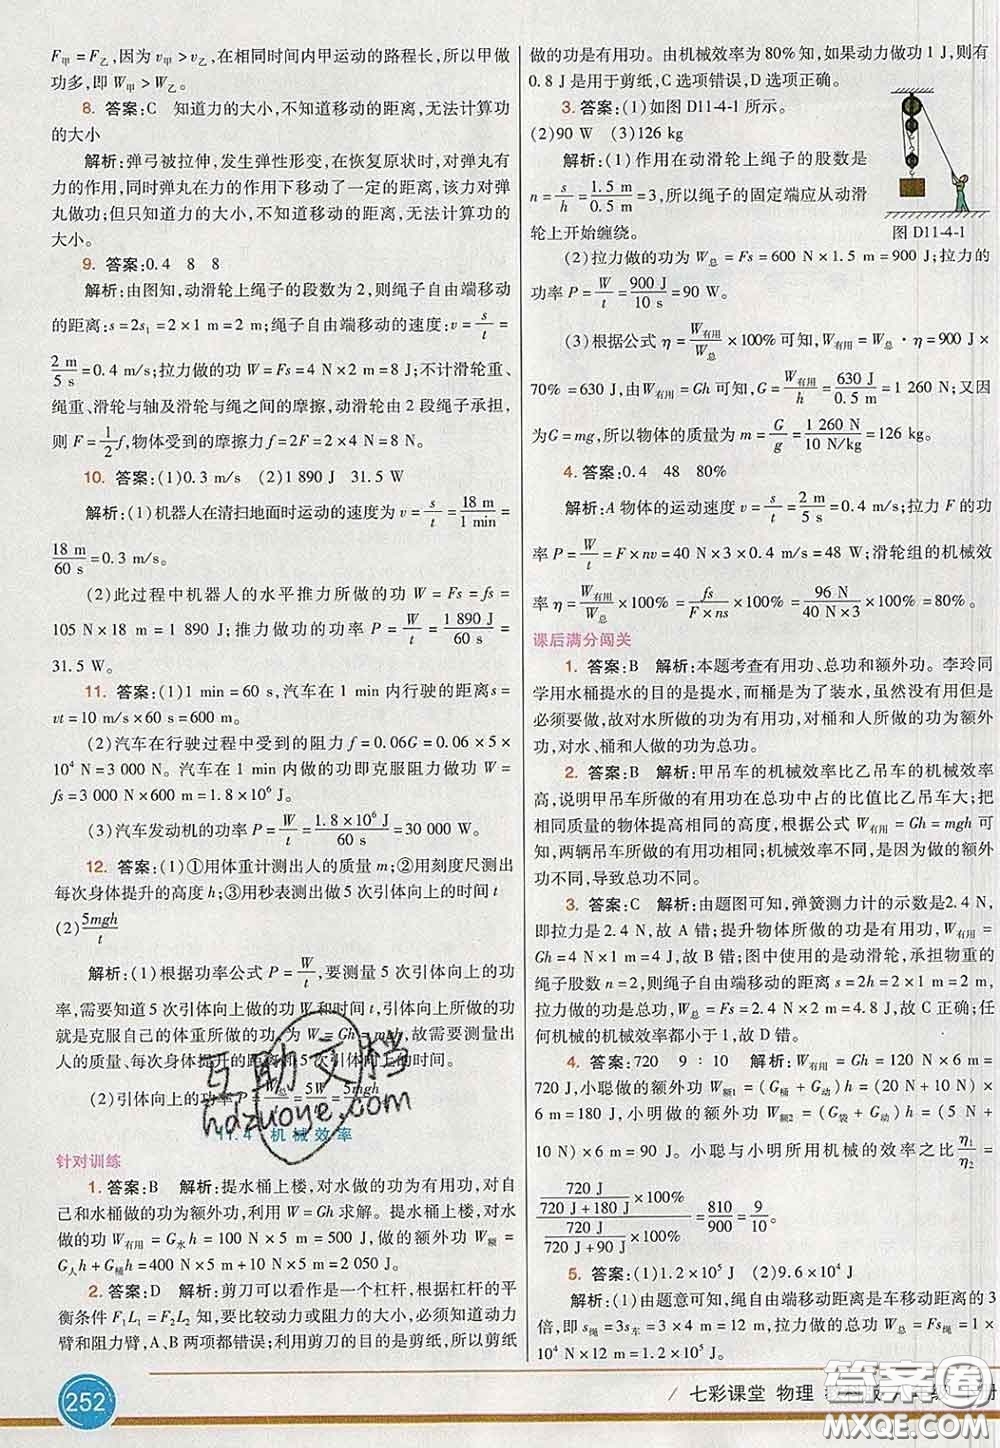 F甲=F乙,因为 v甲>v乙,在相同时间内甲运动的路程长,所以甲做
功多,即 W甲>W乙。
8. 答案:C 知道力的大小,不知道移动的距离,无法计算功
的大小
解析:弹弓被拉伸,发生弹性形变,在恢复原状时,对弹丸有
力的作用,同时弹丸在力的作用下移动了一定的距离,该力对弹
丸做功;但只知道力的大小,不知道移动的距离,无法计算功的
大小。
9. 答案:0.4 8 8
解析:由图知,动滑轮上绳子的段数为 2,则绳子自由端移动
的距离:s=2s₁=2×1 m=2 m;绳子自由端移动的速度:v=s/t=
2 m/5 s=0.4 m/s;拉力做的功 W=Fs=4 N×2 m=8 J;不计滑轮重、
绳重、滑轮与轴及滑轮与绳之间的摩擦,动滑轮由 2 段绳子承担,
则 F=1/2f,物体受到的摩擦力 f=2F=2×4 N=8 N。
10. 答案:(1)0.3 m/s (2)1 890 J 31.5 W
解析:(1)机器人在清扫地面时运动的速度为 v=s/t=18 m/1 min=
18 m/60 s=0.3 m/s。
(2)此过程中机器人的水平推力所做的功 W=Fs=fs=
105 N×18 m=1 890 J;推力做功的功率 P=W/t=1 890 J/60 s=
31.5 W。
11. 答案:(1)1 min=60 s,汽车在 1 min 内行驶的距离s=
vt=10 m/s×60 s=600 m。
(2)汽车在行驶过程中受到的阻力 f=0.06G=0.06×5×
10⁴ N=3 000 N。汽车在 1 min 内做的功即克服阻力做功 W=
fs=3 000 N×600 m=1.8×10⁶ J。
(3)汽车发动机的功率 P=W/t=1.8×10⁶ J/60 s=30 000 W。
12. 答案:(1)①用体重计测出人的质量 m;②用刻度尺测出
每次身体提升的高度 h;③用秒表测出做 5 次引体向上的时间 t
(2)5mgh/t
解析:(1)根据功率公式 P=W/t,要测量引体向上的功
率,需要知道 5 次引体向上做的功 W 和时间 t,引体向上所做的功
就是克服自己的体重所做的功,为 W=Gh=mgh,故需要测量出
人的质量、每次身体提升的距离和 5 次引体向上的时间。
(2)引体向上的功率 P=W总/t=5W/t=5mgh/t
11.4 机械效率
针对训练
1. 答案:B 解析:提水桶上楼,对水做的功为有用功,对自
己和水桶做的功为额外功,利用 W=Gh 求解。提水桶上楼,对水
做的功为 W有用=G水h=100 N×5 m=500 J,做的额外功 W额=
G人h+G桶h=400 N×5 m+10 N×5 m=2 050 J。
2. 答案:D 解析:剪刀可以看作是一个杠杆,根据杠杆的平
衡条件 F₁L₁=F₂L₂ 知,要比较动力或阻力的大小,必须知道动力
臂和阻力臂,A、B 两项都错误;利用剪刀的目的是剪纸,所以剪纸
252
做的功是有用功。由机械效率为 80%知,如果动力做功 1 J,则有
0.8 J 是用于剪纸,C 选项错误,D 选项正确。
3. 答案:(1)如图 D11-4-1 所示。
(2)90 W (3)126 kg
解析:(1)作用在动滑轮上绳子的股数是
n=s/h=1.5 m/0.5 m=3,所以绳子的固定端应从动滑
轮上开始缠绕。
图 D11-4-1
(2)拉力做的功为 W总=Fs=600 N×1.5 m=900 J;拉力的
功率 P=W/t=900 J/10 s=90 W。
(3)根据公式 η=W有用/W总×100%可知,W有用=W总·η=900 J×
70%=630 J,由W有用=Gh 可知,G=W有用/h=630 J/0.5 m=1 260 N;又因
为G=mg,所以物体的质量为 m=G/g=1 260 N/10 N/kg=126 kg。
4. 答案:0.4 48 80%
解析:A 物体的运动速度 v=s/t=2 m/5 s=0.4 m/s;拉力 F 的功
率 P=W/t=F×nv=40 N×3×0.4 m/s=48 W;滑轮组的机械效
率 η=W有用/W总×100%=fs/F×ns×100%=96 N/40 N×3×100%=80%。
课后满分闯关
1. 答案:B 解析:本题考查有用功、总功和额外功。李玲同
学用水桶提水的目的是提水,而桶是为了装水,虽然没有用但是
必须要做,故对水所做的功为有用功,对桶和人所做的功为额外
功,对水、桶和人做的功为总功。
2. 答案:B 解析:甲吊车的机械效率比乙吊车的机械效率
高,说明甲吊车所做的有用功在总功中占的比值比乙吊车大;把
相同质量的物体提高相同的高度,根据公式 W有用=Gh=mgh 可
知,两辆吊车所做的有用功相同;机械效率不同,是因为做的额外功
不同,导致总功不同。
3. 答案:C 解析:由题图可知,弹簧测力计的示数是2.4 N,
即拉力是2.4 N,故 A 错;提升物体所做的功是有用功,W有用=
Gh=4 N×1 m=4 J,故 B 错;图中使用的是动滑轮,承担物重的
绳子股数 n=2,绳子自由端移动的距离 s=2h=2×1 m=2 m,
拉力做的功是总功,W总=Fs=2.4 N×2 m=4.8 J,故 C 正确;任
何机械的机械效率都小于 1,故 D 错。
4. 答案:720 9∶10 解析:W有用=Gh=120 N×6 m=
720 J,小聪做的额外功 W额1=(G桶+G动)h=(20 N+10 N)×
6 m=180 J,小明做的额外功 W额2=(G袋+G动)h=(5 N+
10 N)×6 m=90 J。小聪与小明所用机械的效率之比η₁/η₂=
720 J/720 J+180 J×100% / 720 J/720 J+90 J×100%=810/900=9/10。
5. 答案:(1)1.2×10⁵ J (2)9.6×10⁴ J
解析:(1)由题意可知,绳自由端移动距离是车移动距离的 3
倍,即 s绳=3s车=3×4 m=12 m,拉力做的功 W总=Fs绳=1×
10⁴ N×12 m=1.2×10⁵ J。
七彩课堂 物理
互助文档
hdzuoye.com
答案圈
MXQE.COM